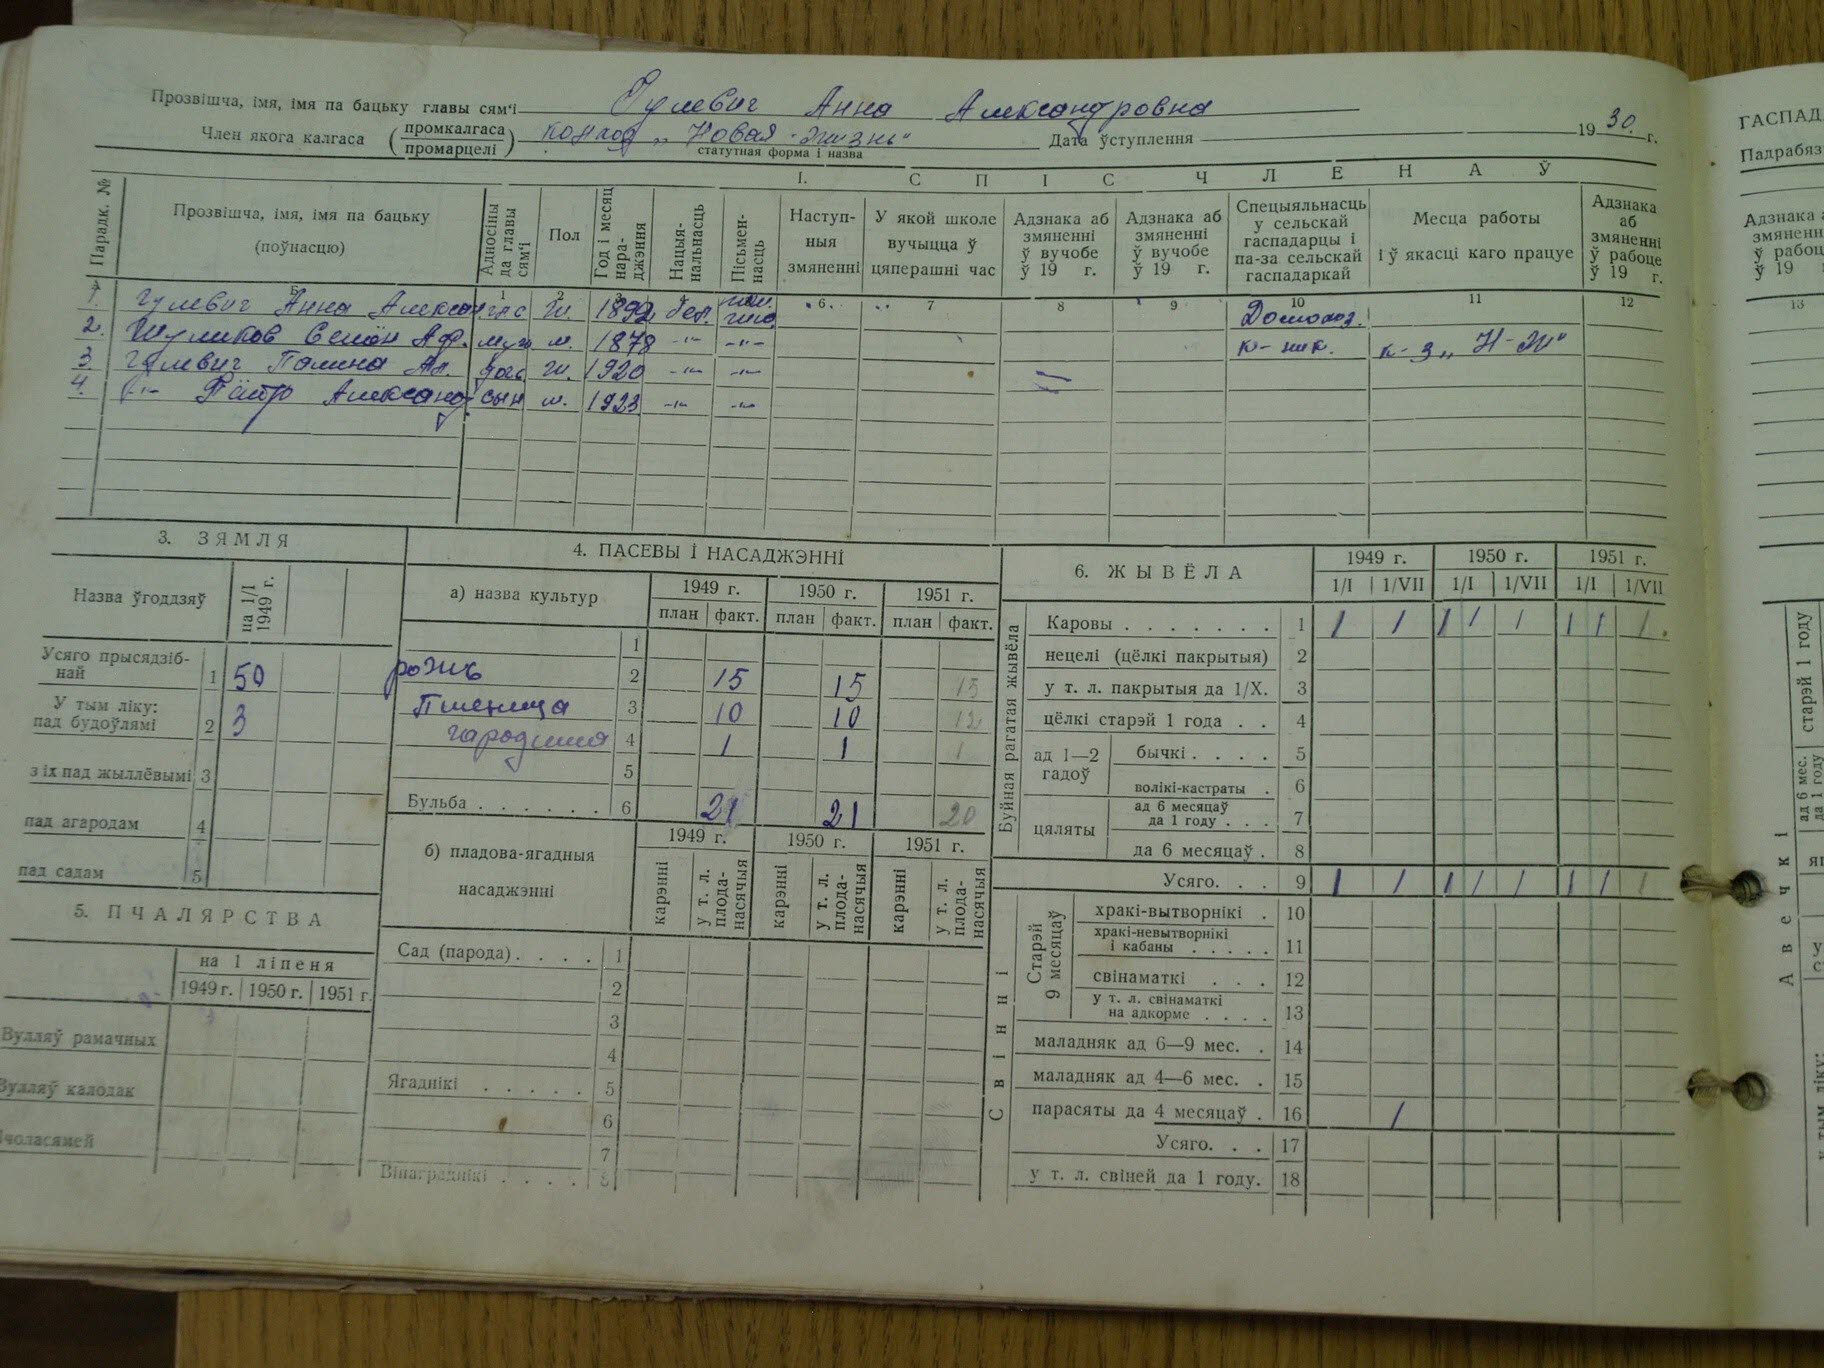 Прозвішча, імя, імя па бацьку главы сям'і Гулевич Анна Александровна
Член якога калгаса (промкалгаса промарцелі) колхоз „Новая-жизнь“ Дата ўступлення 1930 г.
статутная форма і назва
I. СПІС ЧЛЕНАЎ
Парадк. № | Прозвішча, імя, імя па бацьку (поўнасцю) | Адносіны да главы сям'і | Пол | Год і месяц нараджэння | Нацыянальнасць | Пісьменнасць | Наступныя змяненні | У якой школе вучыцца ў цяперашні час | Адзнака аб змяненні ў вучобе ў 19 г. | Адзнака аб змяненні ў вучобе ў 19 г. | Спецыяльнасць у сельскай гаспадарцы і па-за сельскай гаспадаркай | Месца работы і ў якасці каго працуе | Адзнака аб змяненні ў рабоце ў 19 г.
Б 1 2 3 6 7 8 9 10 11 12
1. Гулевич Анна Алексан ж. 1892 бел. Домохоз.
2. Семён Аф. муж м. 1878 -"- -"- к-ник. к-з „Н-Ж“
3. Гулевич Ал. ж. 1920 -"- -"-
4. -"- Пётр Александ. сын м. 1923 -"- -"-
3. ЗЯМЛЯ
Назва ўгоддзяў | на 1/I 1949 г.
Усяго прысядзібнай 1 50
У тым ліку: пад будоўлямі 2 3
з іх пад жыллёвымі 3
пад агародам 4
пад садам 5
5. ПЧАЛЯРСТВА
на 1 ліпеня
1949 г. 1950 г. 1951 г.
Вулляў рамачных
Вулляў калодак
4. ПАСЕВЫ І НАСАДЖЭННІ
а) назва культур | 1949 г. | 1950 г. | 1951 г.
план факт. план факт. план факт.
1
рожь 2 15 15 15
Пшеница 3 10 10 12
4 1 1 1
5
Бульба . . . . . . 6 21 21 20
б) пладова-ягадныя насаджэнні | 1949 г. | 1950 г. | 1951 г.
карэнні | у т. л. плоданасячыя | карэнні | у т. л. плоданасячыя | карэнні | у т. л. плоданасячыя
Сад (парода) . . . . 1
2
3
4
Ягаднікі . . . . . 5
6
7
Вінаграднікі . . . . 8
6. ЖЫВЁЛА | 1949 г. | 1950 г. | 1951 г.
1/I 1/VII 1/I 1/VII 1/I 1/VII
Буйная рагатая жывёла
Каровы . . . . . . . 1 1 1 1 1 1 1 1 1
нецелі (цёлкі пакрытыя) 2
у т. л. пакрытыя да 1/X. 3
цёлкі старэй 1 года . . 4
ад 1—2 гадоў бычкі . . . . 5
волікі-кастраты . 6
цяляты ад 6 месяцаў да 1 году . . . 7
да 6 месяцаў . 8
Усяго. . . 9 1 1 1 1 1 1 1 1
Свінні
Старэй 9 месяцаў
хракі-вытворнікі . 10
хракі-невытворнікі і кабаны . . . . . 11
свінаматкі . . . 12
у т. л. свінаматкі на адкорме . . . . 13
маладняк ад 6—9 мес. . 14
маладняк ад 4—6 мес. . 15
парасяты да 4 месяцаў . 16 1
Усяго. . . 17
у т. л. свіней да 1 году. 18
ГАСПАД
Падрабяз
Адзнака а
змяненн
ў рабоц
ў 19
13
Авечкі
ад 6 мес. да 1 году
старэй 1 году